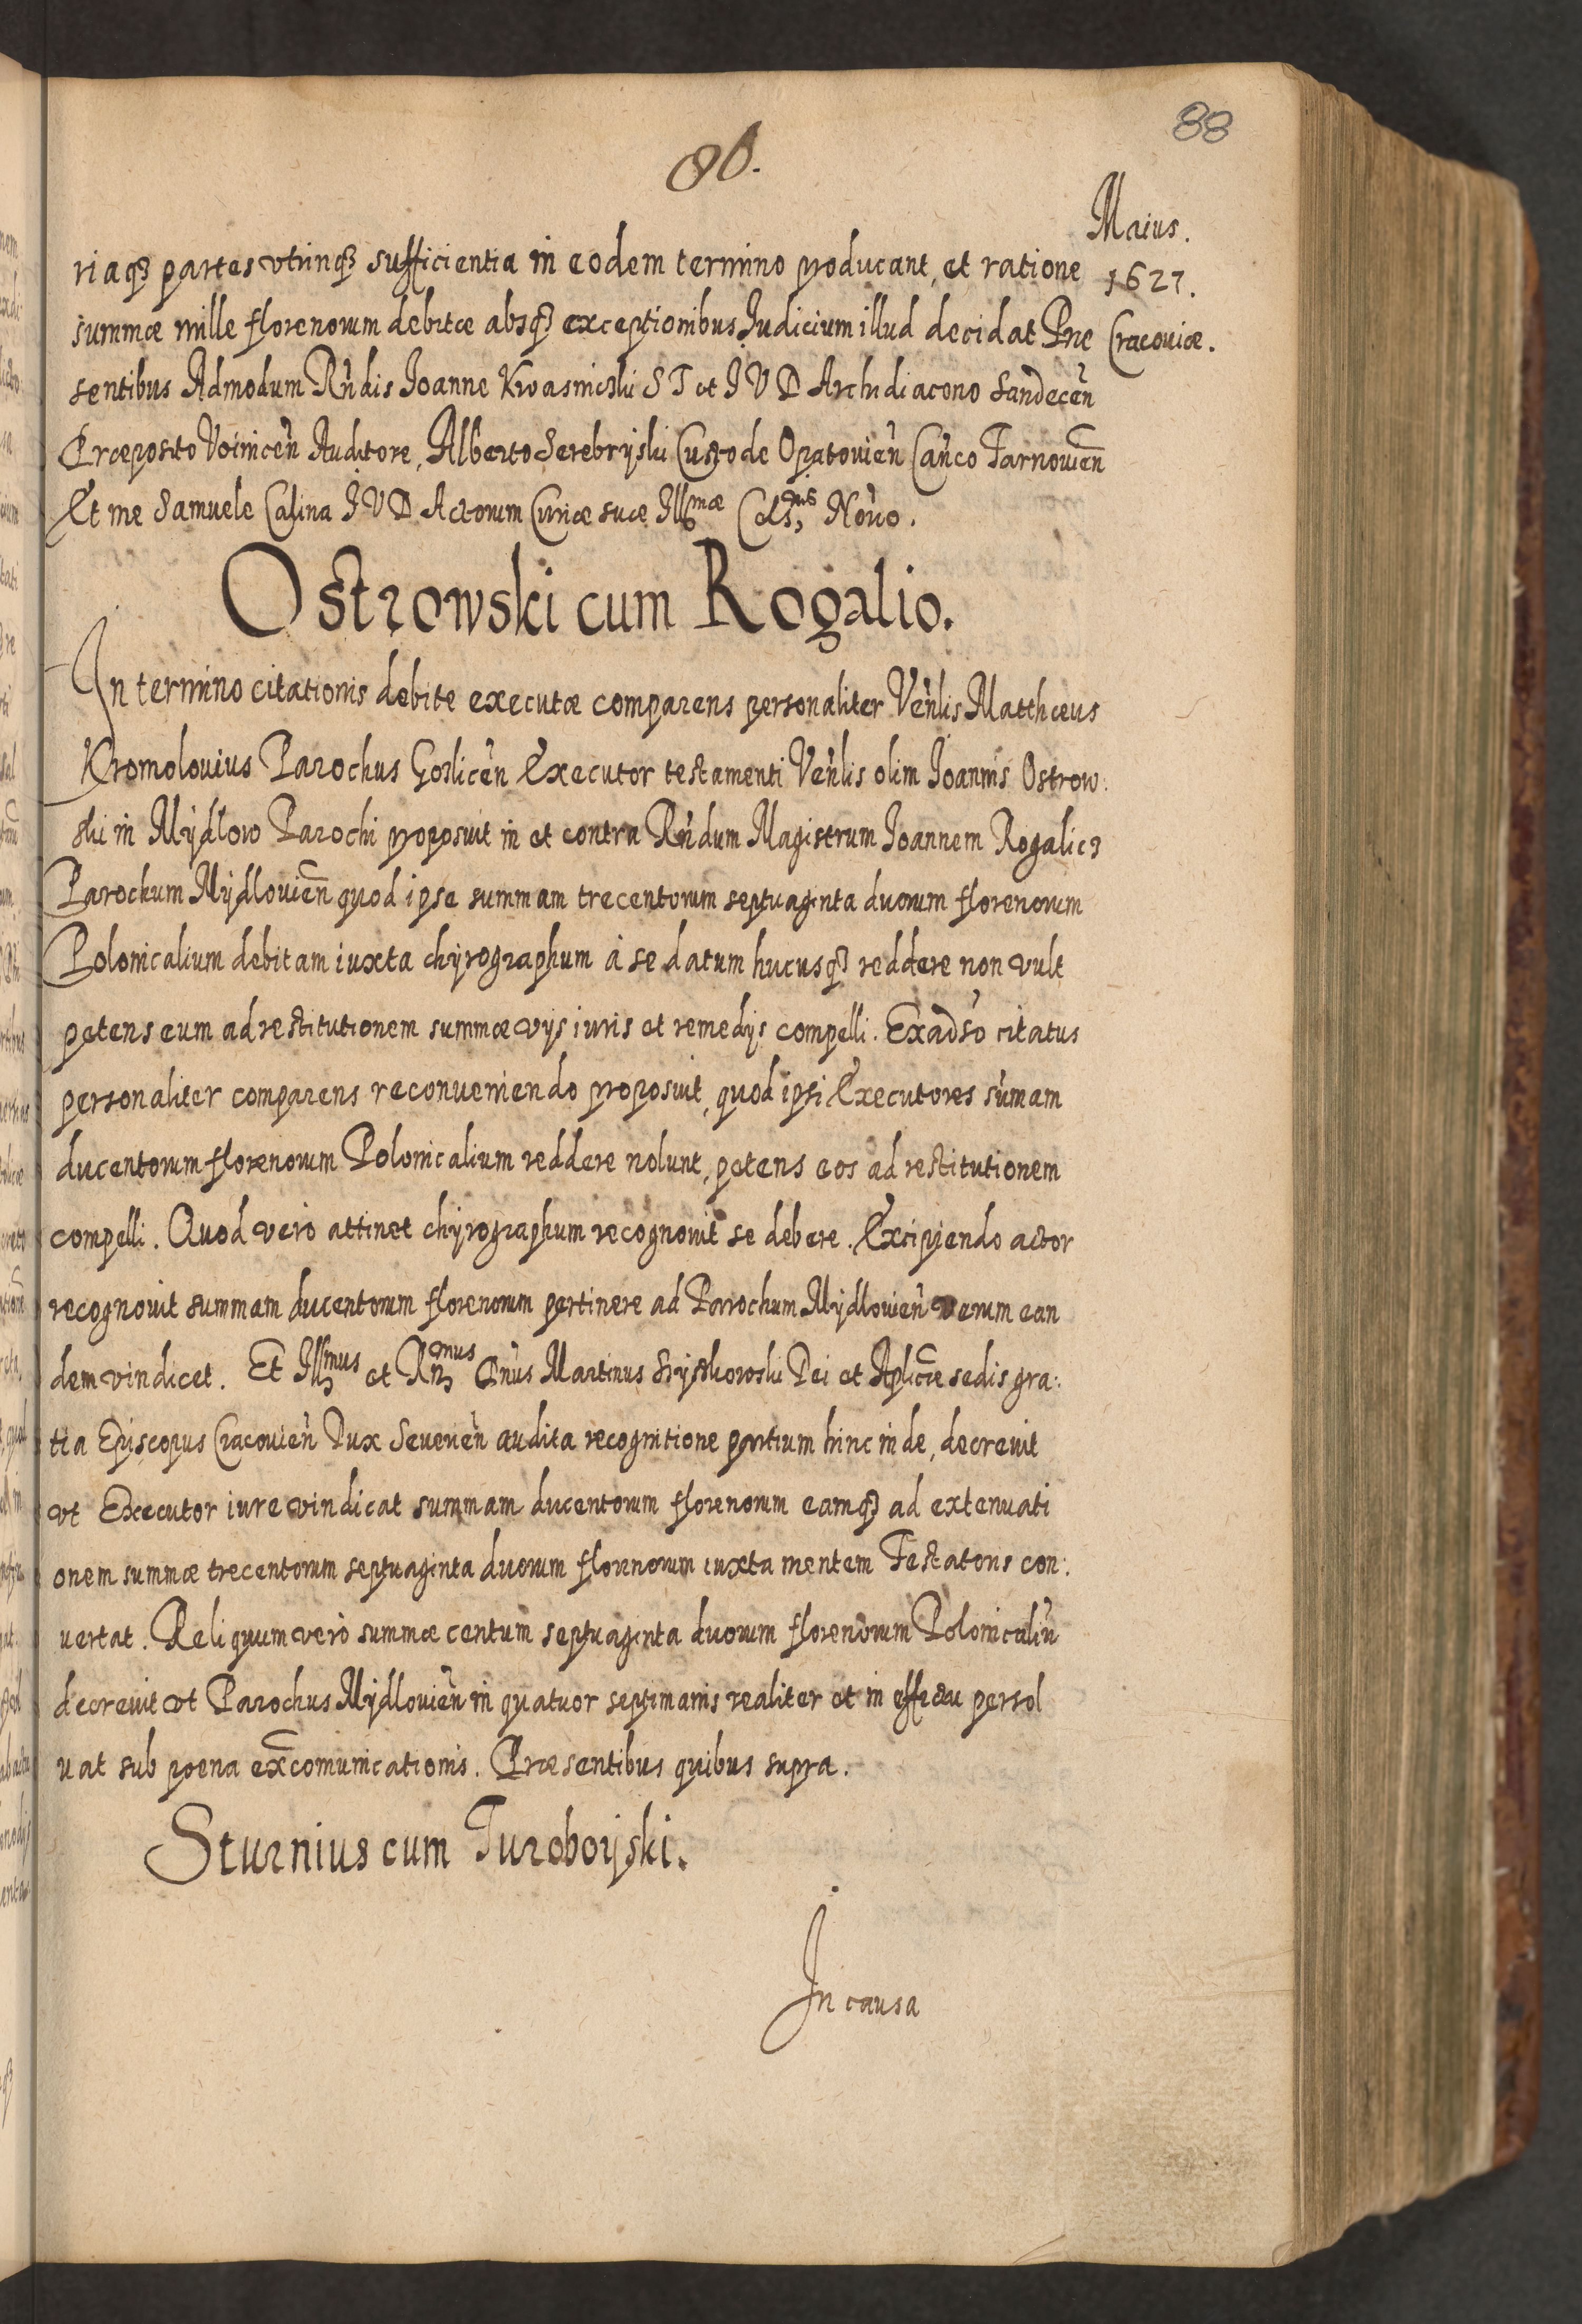 88
86.
Maius.
1627.
Cracouiæ.
riaq3 partes vtrinq3 sufficientia in eodem termino producant, et ratione
summæ mille florenorum debitæ absq3 exceptionibus Iudicium illud decidat Præ
sentibus Admodum Rñdis Ioanne Kwasnicski S T et I V D Archidiacono Sandecen̄
Præposito Voinicen̄ Auditore, Alberto Serebryski Custode Opatouien̄ Can̄co Tarnouien̄
Et me Samuele Casina I V D Actorum Curiæ suæ Illmæ Notrio.
Ostrowski cum Rogalio.
In termino citationis debite executæ comparens personaliter Veńlis Matthæus
Kromolouius Parochus Gorlicen̄ Executor testamenti Veńlis olim Ioannis Ostrow:
ski in Mÿdłow Parochi proposuit in et contra Rńdum Magistrum Ioannem Rogalic3
Parochum Mÿdlouien̄ quod ipse summam trecentorum septuaginta duorum florenorum
Polonicalium debitam iuxta chÿrographum à se datum hucusq3 reddere non vult
petens eum ad restitutionem summæ vÿs iuris et remedÿs compelli. Exadso citatus
personaliter comparens reconueniendo proposuit, quod ipsi Executores sum̄am
ducentorum florenorum Polonicalium reddere nolunt, petens eos ad restitutionem
compelli. Quod verò attinet chÿrographum recognouit se debere. Excipiendo actor
recognouit summam ducentorum florenorum pertinere ad Parochum Mÿdlouien̄ verum ean
dem vindicet. Et Illmus et Rńmus Dńus Martinus Szÿszkowski Dei et Aplicæ sedis gra:
tia Episcopus Cracouien̄ Dux Seuerien̄ audita recognitione partium hinc inde, decreuit
vt Executor iure vindicat summam ducentorum florenorum eamq3 ad extenuati
onem summæ trecentorum septuaginta duorum florenorum iuxta mentem Testatoris con:
uertat. Reliquum verò summæ centum septuaginta duorum florenorum Polonicaliu̅
decreuit vt Parochus Mÿdlouien̄ in quatuor septimanis realiter et in effectu persol
uat sub poena excom̄unicationis. Præsentibus quibus supra.
Sturnius cum Turoboÿski.
In causa